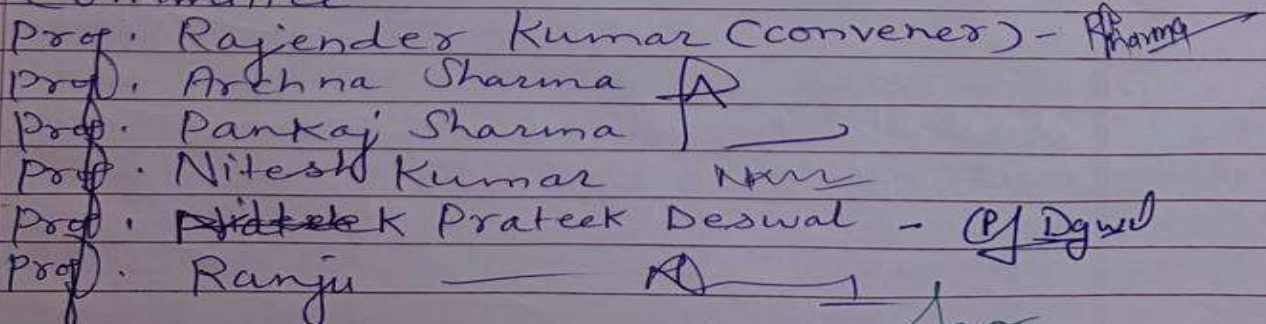 Prof. Rajender Kumar (convener) -
Prof. Archna Sharma
Prof. Pankaj Sharma
Prof. Nitesh Kumar
Prof. K Prateek Deswal -
Prof. Ranju